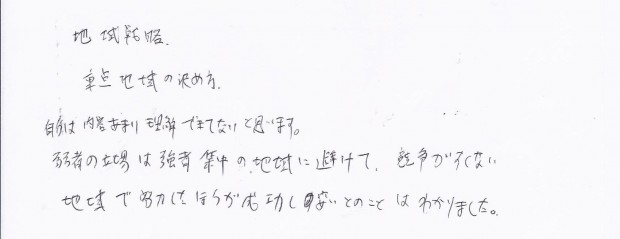 地域戦略.
重点地域の決め方.
自分は内容あまり理解できてないと思います。
弱者の立場は強者集中の地域に避けて、競争が少ない
地域で努力したほうが成功し易いとのことはわかりました。